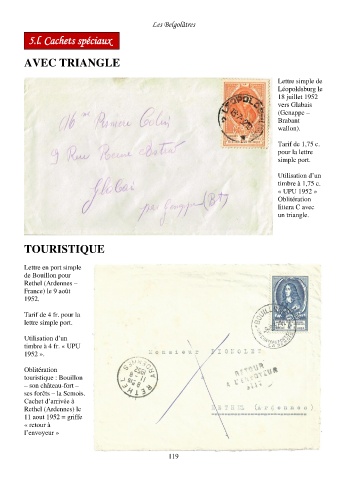 Les Belgolâtres
5.l. Cachets spéciaux
AVEC TRIANGLE
Lettre simple de
Léopoldsburg le
18 juillet 1952
vers Glabais
(Genappe –
Brabant
wallon).
Tarif de 1,75 c.
pour la lettre
simple port.
Utilisation d’un
timbre à 1,75 c.
« UPU 1952 »
Oblitération
littera C avec
un triangle.
9 Rue
Glabais
par Genappe (Bt)
TOURISTIQUE
Lettre en port simple
de Bouillon pour
Rethel (Ardennes –
France) le 9 août
1952.
Tarif de 4 fr. pour la
lettre simple port.
Utilisation d’un
timbre à 4 fr. « UPU
1952 ».
Oblitération
touristique : Bouillon
– son château-fort –
ses forêts – la Semois.
Cachet d’arrivée à
Rethel (Ardennes) le
11 aout 1952 + griffe
« retour à
l’envoyeur »
BOUILLON
Monsieur
RETOUR
A L'ENVOYEUR
RETHEL (Ardennes)
RETHEL
ARDENNES
119